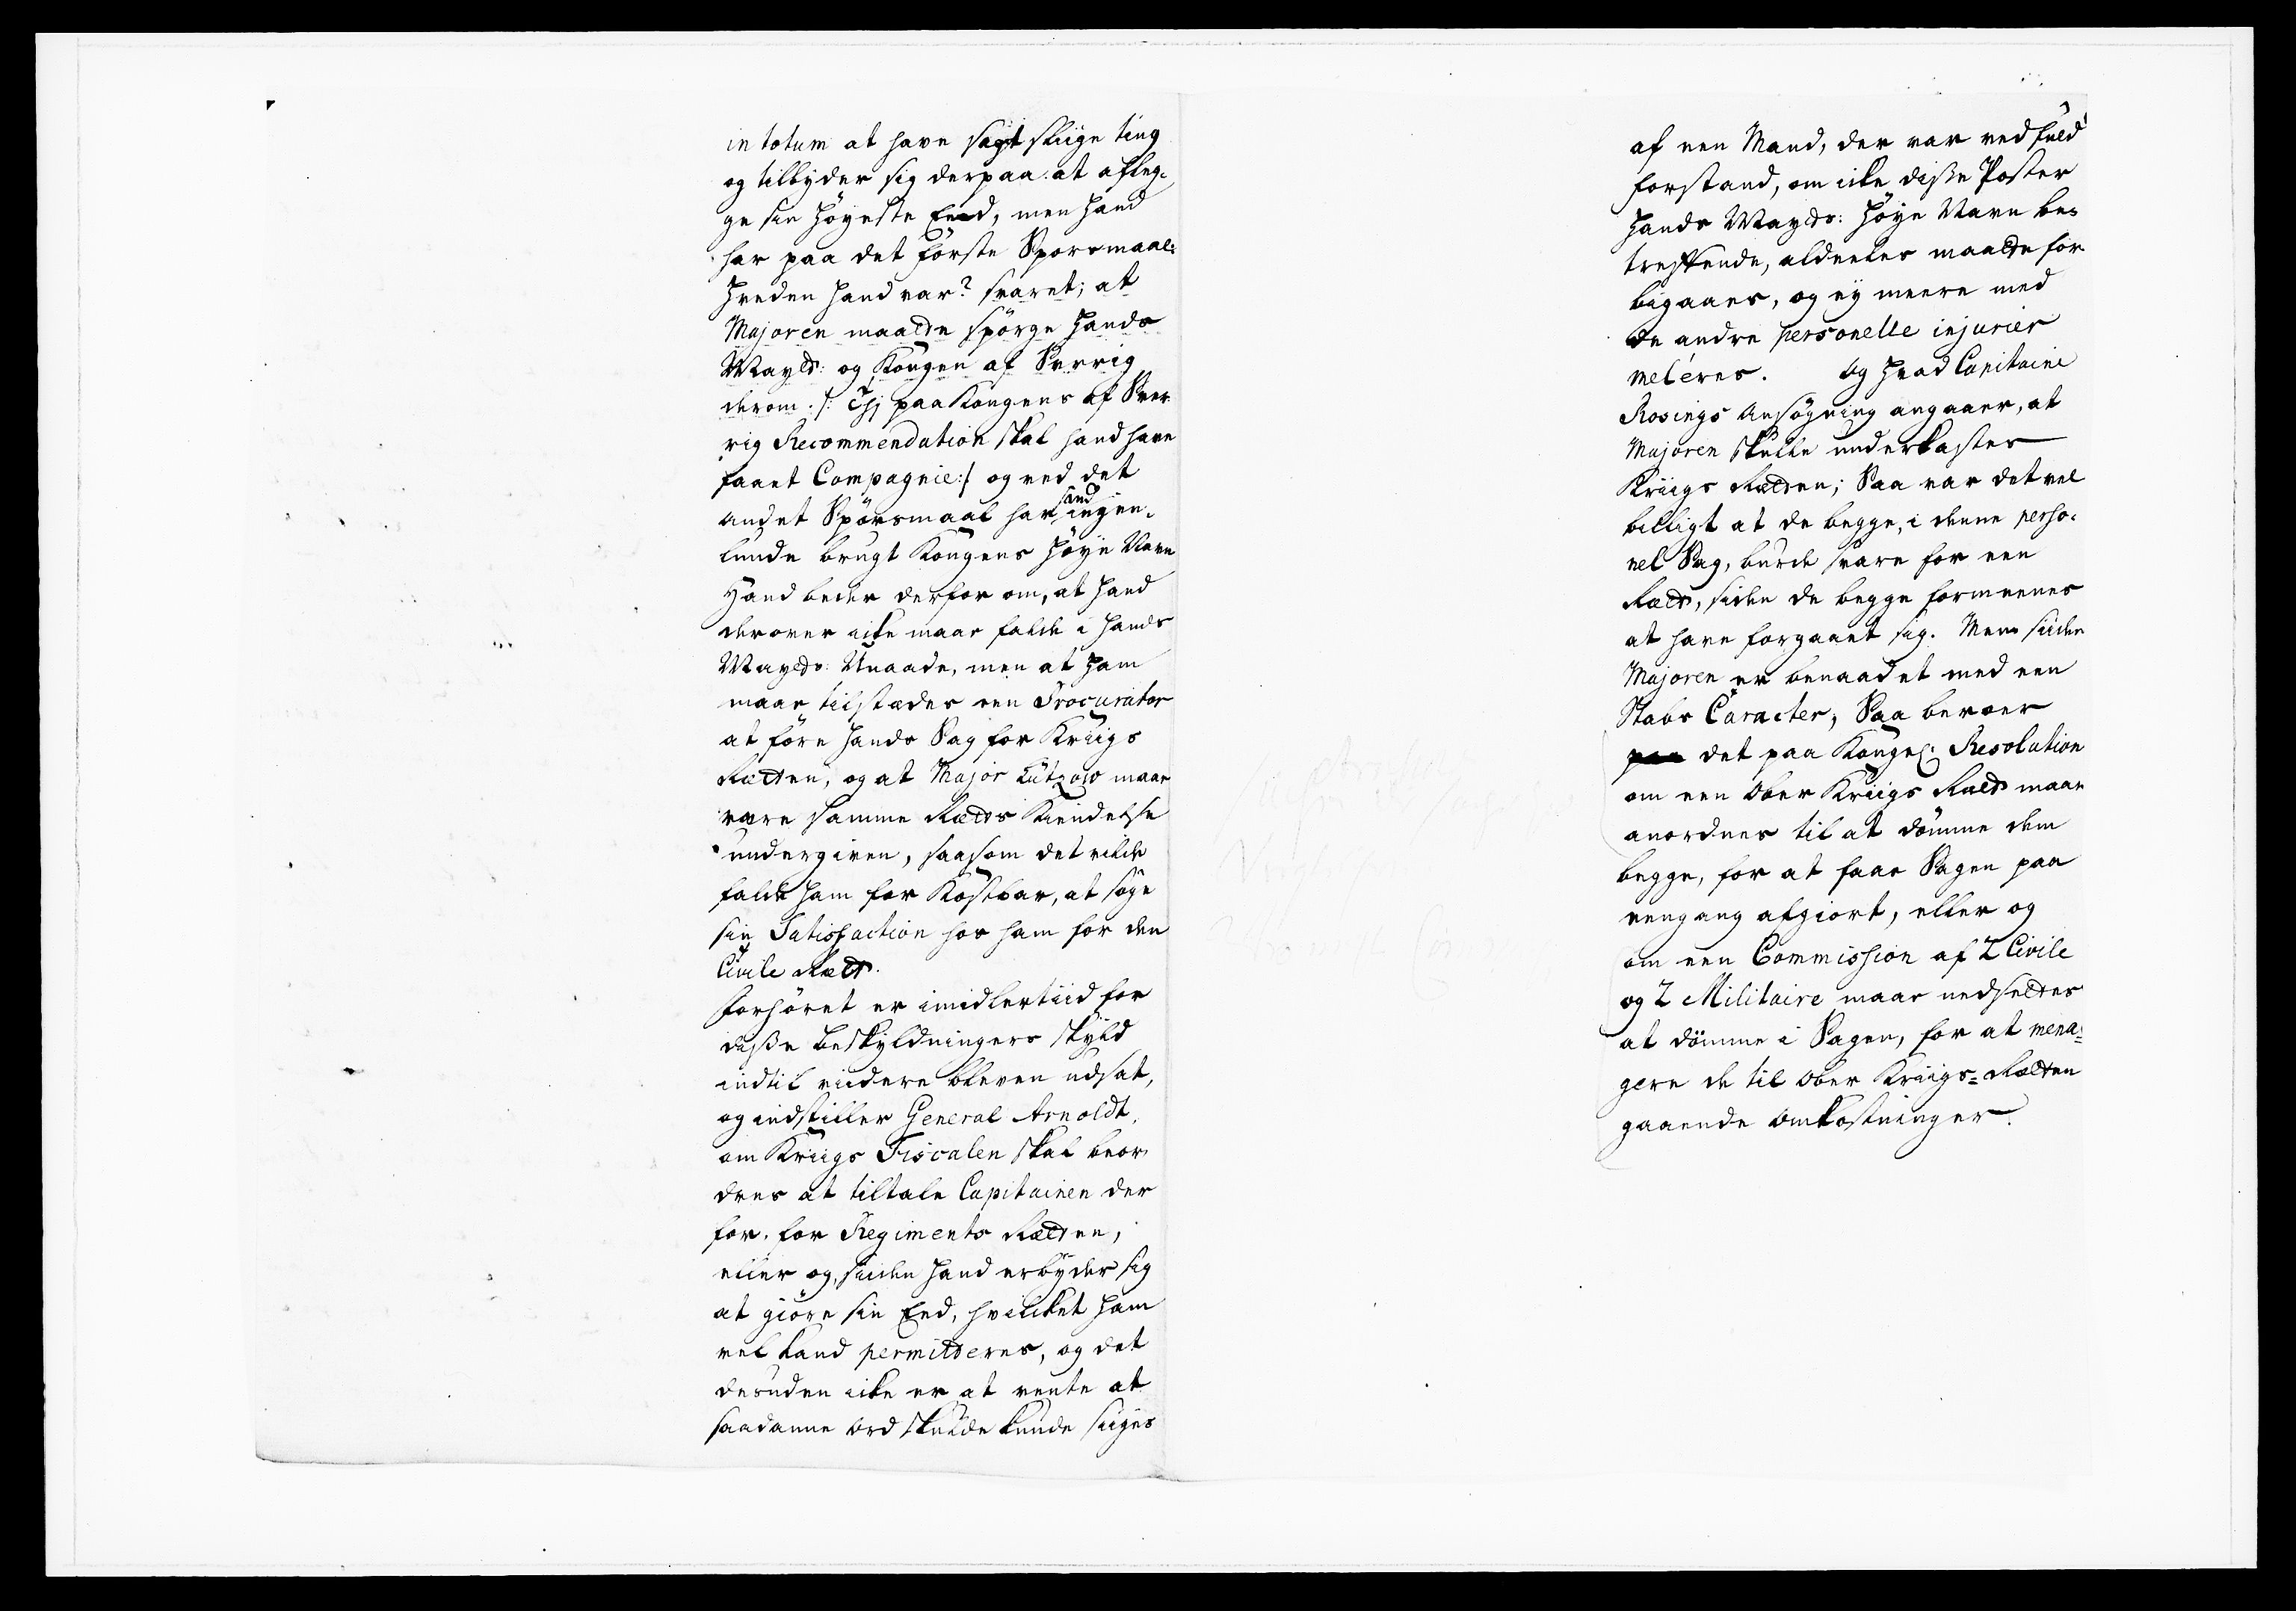 in totum at have sagt sliige ting
og tilbyder sig derpaa at afleg-
ge sin höyeste Eed, men hand
har paa det förste Sporsmaal:
hveden hand var? svaret; at
Majoren maatte spörge hands
Mayts: og Kongen af Sverrig
derom :/: Thj paa Kongens af Sver
rig Recommendation skal hand have
faaet Compagnie:/ og ved det
andet Spörsmaal har hand ingen-
lunde brugt Kongens höye Navn
Hand beder derfor om, at hand
derover icke maae falde i hands
Mayts: Unaade, men at ham
maae tilstædes een Procurator
at före hands Sag for Kriigs
Rætten, og at Major Lützow maae
være samme Rætts Kiendelse
undergiven, saasom det vilde
falde ham for Kostbar, at söge
sin Satisfaction hos ham for den
Civile Rætt.
Forhöret er imidlertiid for
disse beskyldningers skyld
indtil viidere bleven udsat,
og indstiller General Arnoldt,
om Kriigs Fiscalen skal beor-
dres at tiltale Capitainen der
for, for Regiments Rætten,
eller og, siiden hand erbyder sig
at giöre sin Eed, hvilcket ham
vel kand permitteres, og det
desuden icke er at vente at
saadanne ord skulde kunde siiges
af een Mand, der var ved fuld
forstand, om icke disse Poster
hands Mayts: höye Navn be-
treffende, aldeeles maatte for
bigaaes, og ey meere med
de andre personelle injurier
meléres. Og hvad Capitaine
Rosings Ansögning angaaer, at
Majoren skulle underkastes
Kriigs Rætten; Saa var det vel
billigt at de begge, i denne perso-
nel Sag, burde svare for een
Rætt, siden de begge formeenes
at have forgaaet sig. Men siiden
Majoren er benaadet med een
Stabs Caracter, Saa beroer
paa det paa Kongel: Resolution
om een Ober Kriigs Rætt maae
anordnes til at dömme dem
begge, for at faae Sagen paa
eengang afgiort, eller og
om een Commission af 2 Civile
og 2 Militaire maae nedsettes
at dömme i Sagen, for at mena-
gere de til Ober Kriigs-Rætten
gaaende Omkostninger.